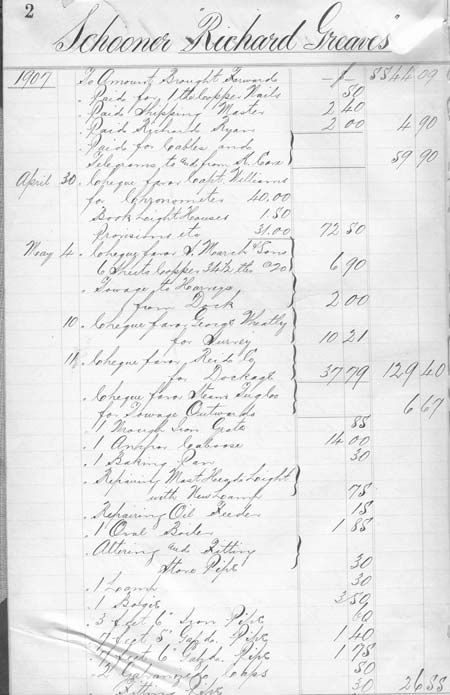 2
Schooner "Richard Greaves"
1907 To Amount Brought Forward 5544 09
" Paid for 1 lb Copper Nails 50
" Paid Shipping Master 2 40
" Paid Richard Ryan 2 00 4 90
" Paid for Cables and
Telegrams to and from R. Cox 59 90
April 30 " Cheque favor Capt. Williams
for Chronometer 40.00
Book Light Houses 1.50
Provisions etc 31.00 72 50
May 4 " Cheque favor S. March & Sons
6 Sheets Copper 34½ lbs @ 20 6 90
" Towage to Harveys
from Dock 2 00
10 " Cheque favor George Wheatly
for Survey 10 21
" Cheque favor Reid Co
for Dockage 37 79 129 40
" Cheque favor Steam Tugs Co
for Towage Outwards 6 67
" 1 Wrought Iron Grate 55
" 1 Caboose 14 00
" 1 Baking Pan 30
" Repairing Mast Head Light
with New Lamp 75
" Repairing Oil Feeder 15
" 1 Oval Boiler 1 85
" Altering and Fitting
Stove Pipe 30
" 1 Lamp 30
" 1 Bogie 3 50
" 3 feet 6" Iron Pipe 60
feet 5" Galvd. Pipe 1 40
feet 6" Galvd. Pipe 1 75
2 Caps 50
Fitting Pipe 30 26 55